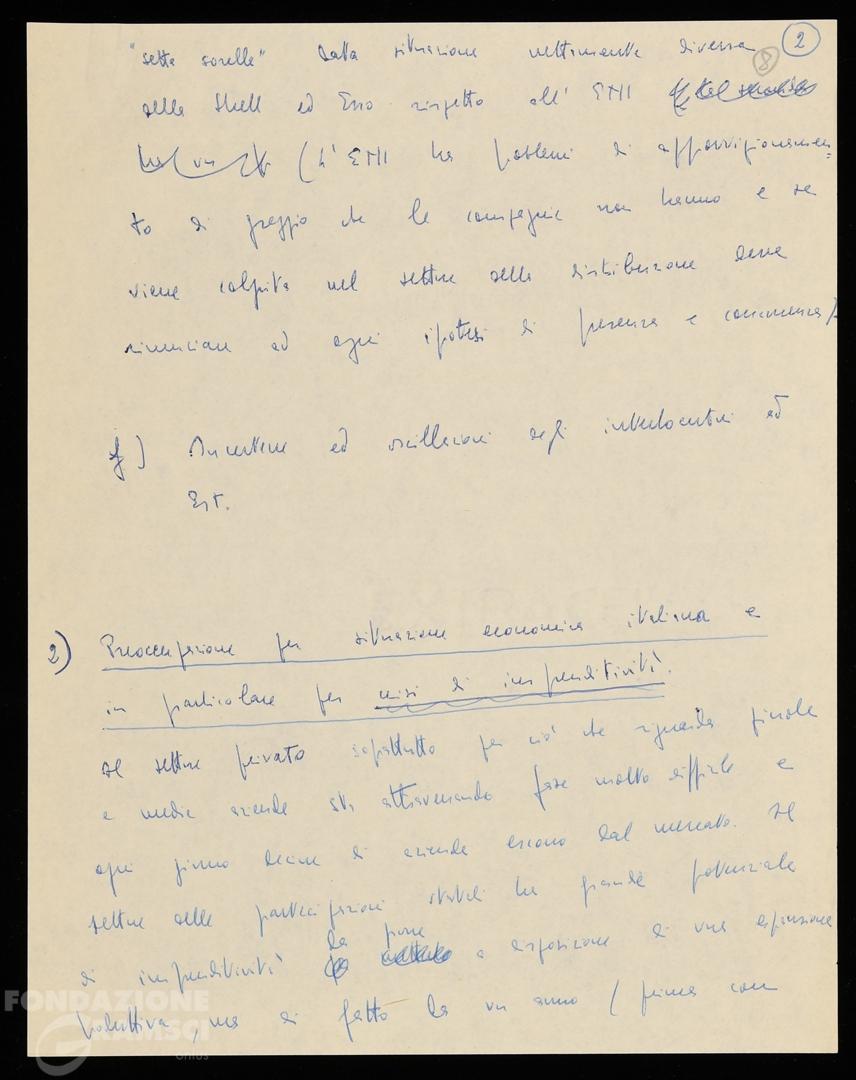 2
8
"sette sorelle" data situazione nettamente diversa
della Shell ed Esso rispetto all'ENI
(L'ENI ha problemi di approvvigionamen=
to di greggio che le compagnie non hanno e se
viene colpita nel settore della distribuzione deve
rinunciare ad ogni ipotesi di presenza e concorrenza)
f) Incertezze ed oscillazioni degli interlocutori ad
Est.
2) Preoccupazione per situazione economica italiana e
in particolare per crisi di imprenditività.
Il settore privato soprattutto per ciò che riguarda piccole
e medie aziende sta attraversando fase molto difficile e
ogni giorno decine di aziende escono dal mercato. Il
settore delle partecipazioni statali ha grande potenziale
da porre
di imprenditività a disposizione di una espansione
produttiva, ma di fatto da un anno (prima con
FONDAZIONE
GRAMSCI
onlus